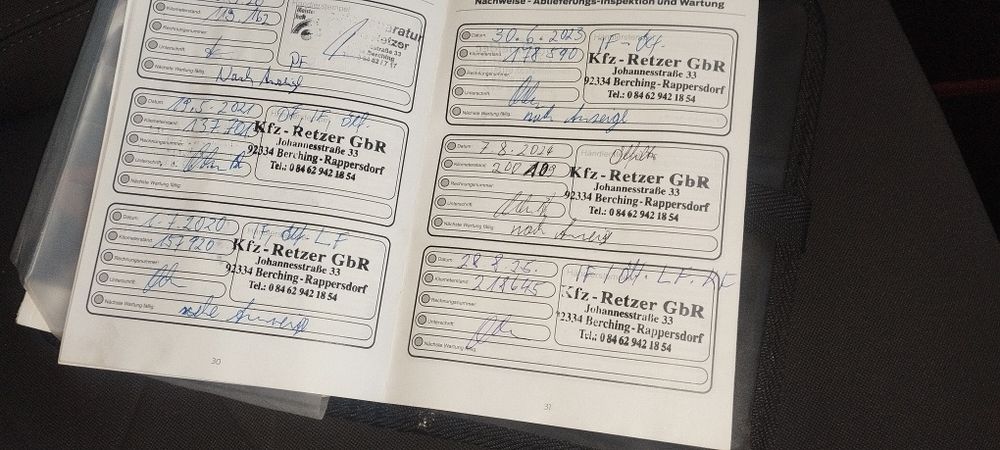 Datum:
Kilometerstand:
Rechnungsnummer:
Unterschrift:
Nächste Wartung fällig:
Nach Anzeige
Datum: 19.5.2021
Kilometerstand:
Rechnungsnummer:
Unterschrift:
Nächste Wartung fällig:
Kfz-Retzer GbR
Johannesstraße 33
92334 Berching-Rappersdorf
Tel.: 0 84 62 942 18 54
Datum:
Kilometerstand: 157920
Rechnungsnummer:
Unterschrift:
Nächste Wartung fällig:
IF Ölf. LF
Kfz-Retzer GbR
Johannesstraße 33
92334 Berching-Rappersdorf
Tel.: 0 84 62 942 18 54
30
Nachweise - Ablieferungs-Inspektion und Wartung
Datum: 30.6.2023
Kilometerstand: 178590
Rechnungsnummer:
Unterschrift:
Nächste Wartung fällig: nach Anzeige
Kfz-Retzer GbR
Johannesstraße 33
92334 Berching-Rappersdorf
Tel.: 0 84 62 942 18 54
Datum: 7.8.2024
Kilometerstand:
Rechnungsnummer:
Unterschrift:
Nächste Wartung fällig: nach Anzeige
Kfz-Retzer GbR
Johannesstraße 33
92334 Berching-Rappersdorf
Tel.: 0 84 62 942 18 54
Datum: 28.8.25.
Kilometerstand: 218645
Rechnungsnummer:
Unterschrift:
Nächste Wartung fällig:
Kfz-Retzer GbR
Johannesstraße 33
92334 Berching-Rappersdorf
Tel.: 0 84 62 942 18 54
31